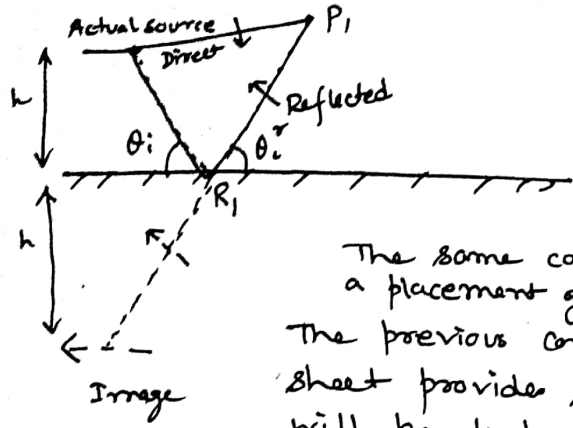 Actual source
P1
Direct
h
Reflected
θi
θir
R1
h
The same co
a placement
The previous co
Image
sheet provides
will be